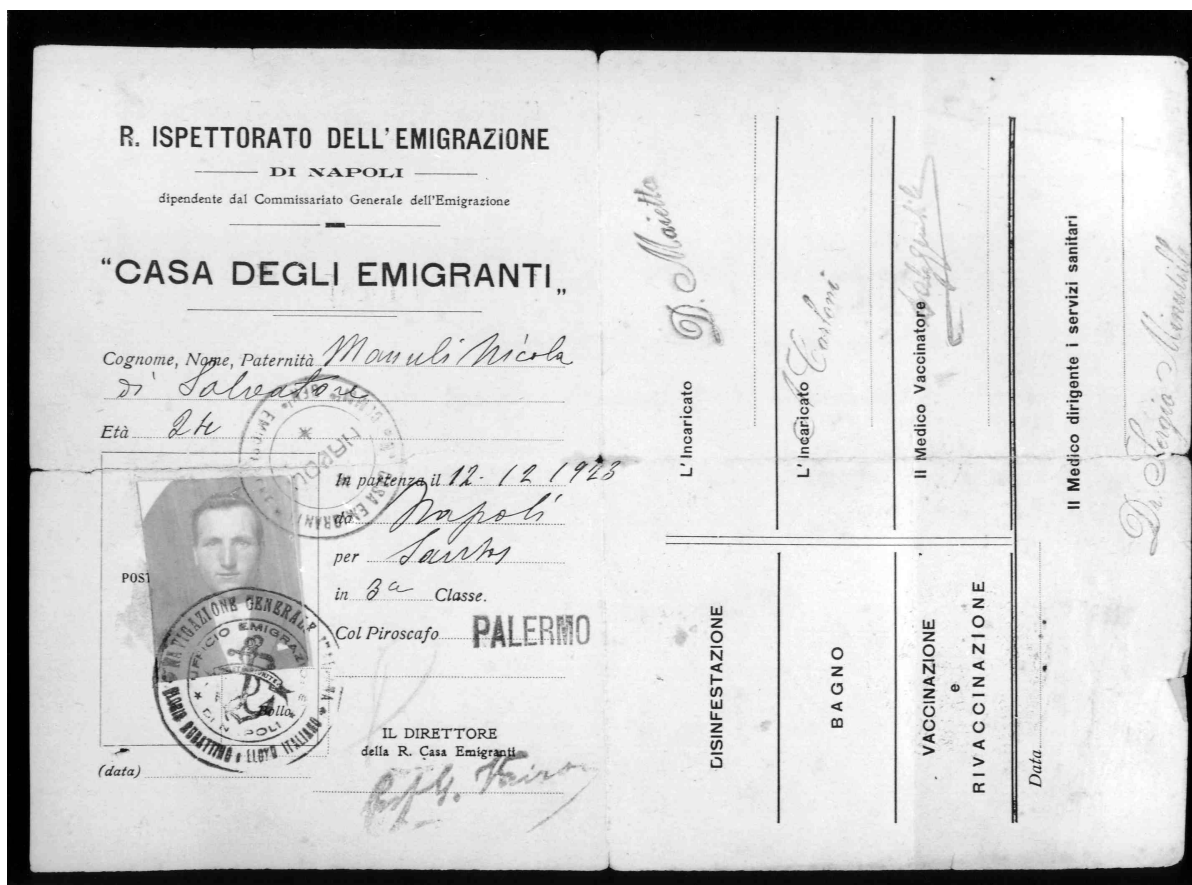 R. ISPETTORATO DELL'EMIGRAZIONE
DI NAPOLI
dipendente dal Commissariato Generale dell'Emigrazione
"CASA DEGLI EMIGRANTI„
Cognome, Nome, Paternità Manuli Nicola
di Salvatore
Età 24
NAPOLI
In partenza il 12-12 1923
da Napoli
per Santos
in 3a Classe.
Col Piroscafo PALERMO
POST
NAVIGAZIONE GENERALE
UFFICIO EMIGRAZIONE
DI NAPOLI
LLOYD ITALIANO
Bollo
IL DIRETTORE
della R. Casa Emigranti
(data)
DISINFESTAZIONE
L'Incaricato
D. Maietta
BAGNO
L'Incaricato
VACCINAZIONE
e
RIVACCINAZIONE
Il Medico Vaccinatore
Data
Il Medico dirigente i servizi sanitari
Dr. Sergio